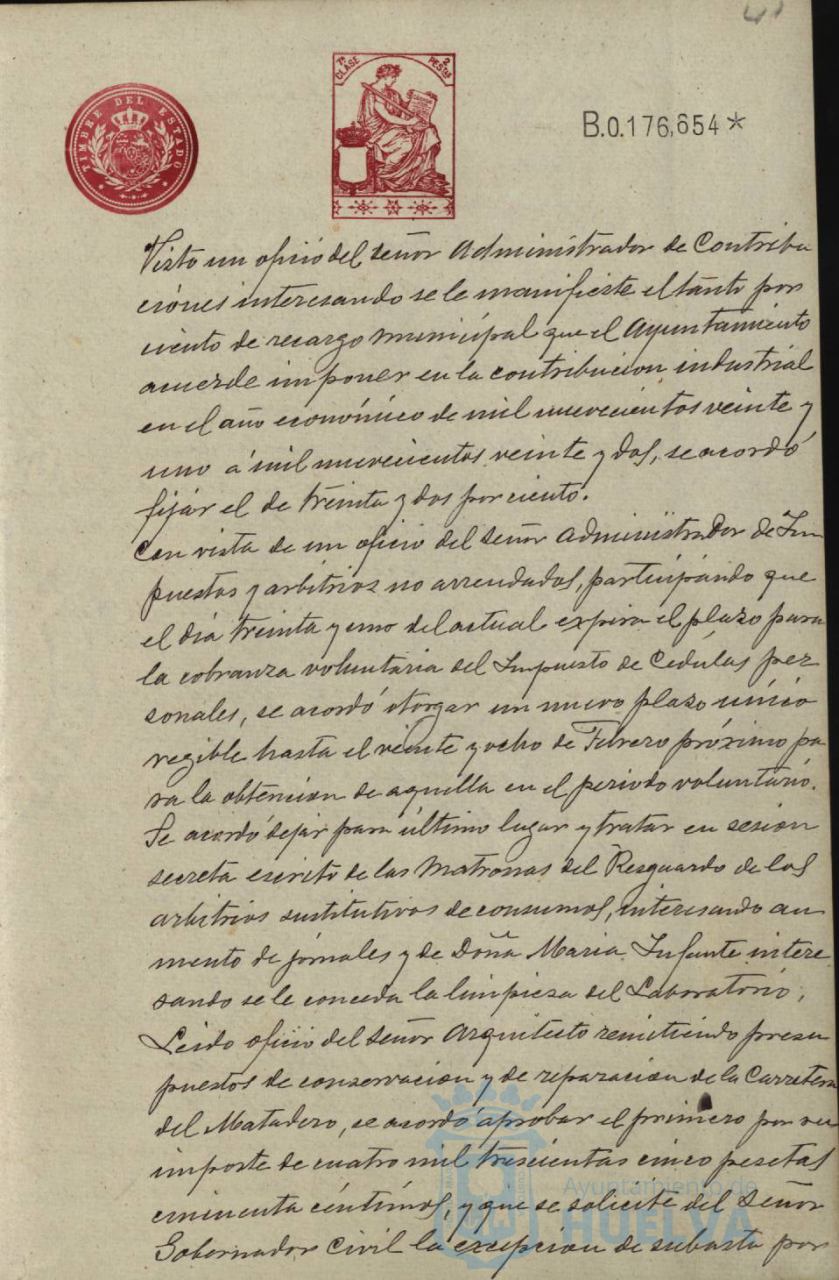 41
TIMBRE DEL ESTADO
7ª CLASE
2 PESTAS
B.0.176,654*
Visto un oficio del señor Administrador de Contribu
ciones interesando se le manifieste el tanto por
ciento de recargo municipal que el Ayuntamiento
acuerde imponer en la contribucion industrial
en el año económico de mil nuevecientos veinte y
uno á mil nuevecientos veinte y dos, se acordó
fijar el de treinta y dos por ciento.
Con vista de un oficio del señor Administrador de Im
puestos y arbitrios no arrendados, participando que
el dia treinta y uno del actual expira el plazo para
la cobranza voluntaria del Impuesto de Cedulas per
sonales, se acordó otorgar un nuevo plazo único
regible hasta el veinte y ocho de Febrero próximo pa
ra la obtencion de aquella en el periodo voluntario.
Se acordó dejar para último lugar y tratar en sesion
secreta escrito de las Matronas del Resguardo de los
arbitrios sustitutivos de consumos, interesando au
mento de jornales y de Doña Maria Infante intere
sando se le conceda la limpieza del Laboratorio.
Leido oficio del señor Arquitecto remitiendo presu
puestos de conservacion y de reparacion de la Carretera
del Matadero, se acordó aprobar el primero por su
importe de cuatro mil trescientas cinco pesetas
cincuenta céntimos, y que se solicite del Señor
Gobernador Civil la excepcion de subasta por
Ayuntamiento de
HUELVA